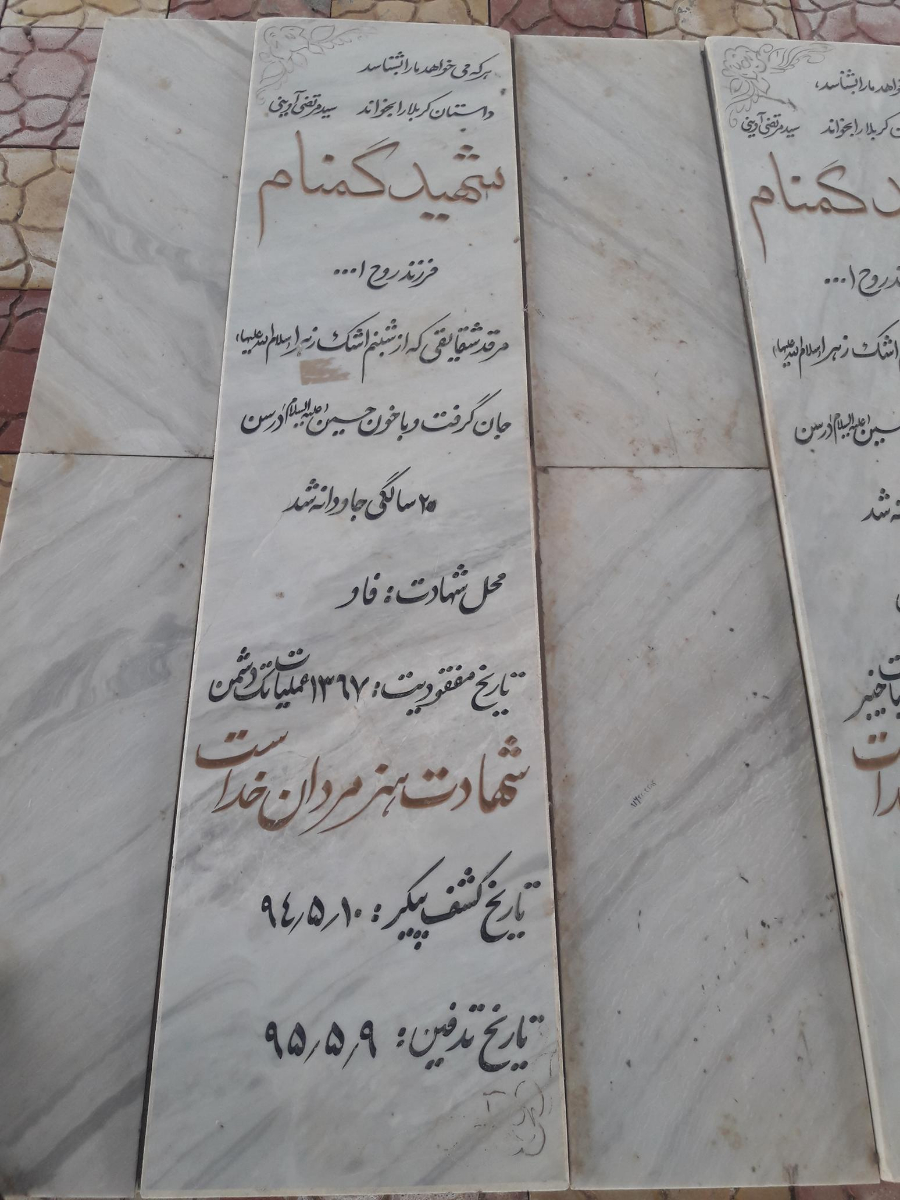 هر که می خواهد ما را بشناسد
داستان کربلا را بخواند سید مرتضی آوینی
شهید گمنام
فرزند روح ا...
مرقد شقایقی که از شبنم اشک زهرا (سلام الله علیها)
جان گرفت و با خون حسین (علیه السلام) در سن
۲۰ سالگی جاودانه شد
محل شهادت: فاو
تاریخ مفقودیت: ۱۳۶۷ عملیات تک دشمن
شهادت هنر مردان خداست
تاریخ کشف پیکر: ۹۴٫۵٫۱۰
تاریخ تدفین: ۹۵٫۵٫۹
خواهد ما را بشناسد،
کربلا را بخواند سید مرتضی آوینی
د گمنام
روح ا...
اشک زهرا (سلام الله علیها)
حسین (علیه السلام) در سن
شد
خیبر